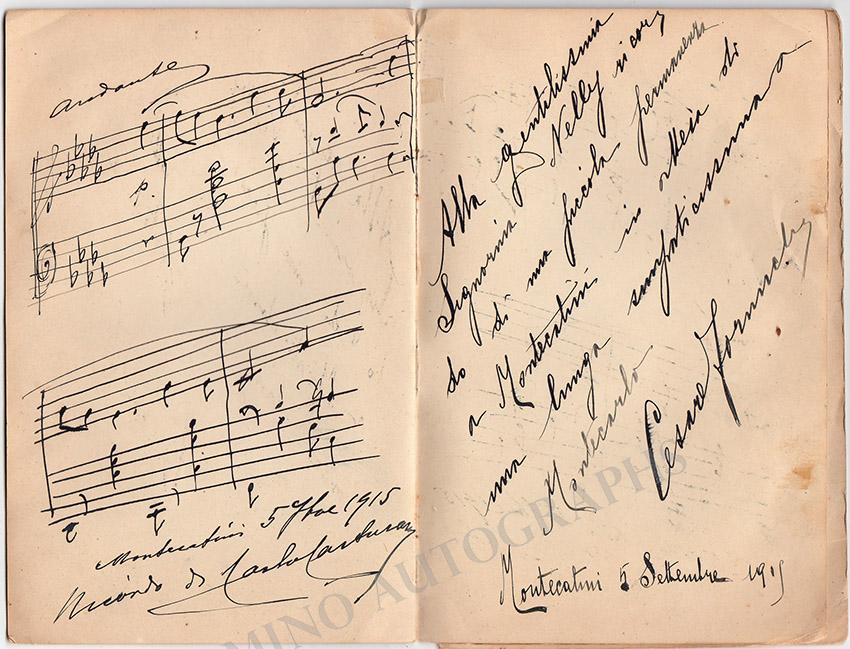 Andante
p.
Montecatini 5 7bre 1915
Ricordo di Carlo
Alla gentilissima
Signorina Nelly ricor
do di una piccola permanenza
a Montecatini in attesa di
una lunga simpaticissima a
Montecarlo
Cesare
Montecatini 5 Settembre 1915
MINO AUTOGRAPHS